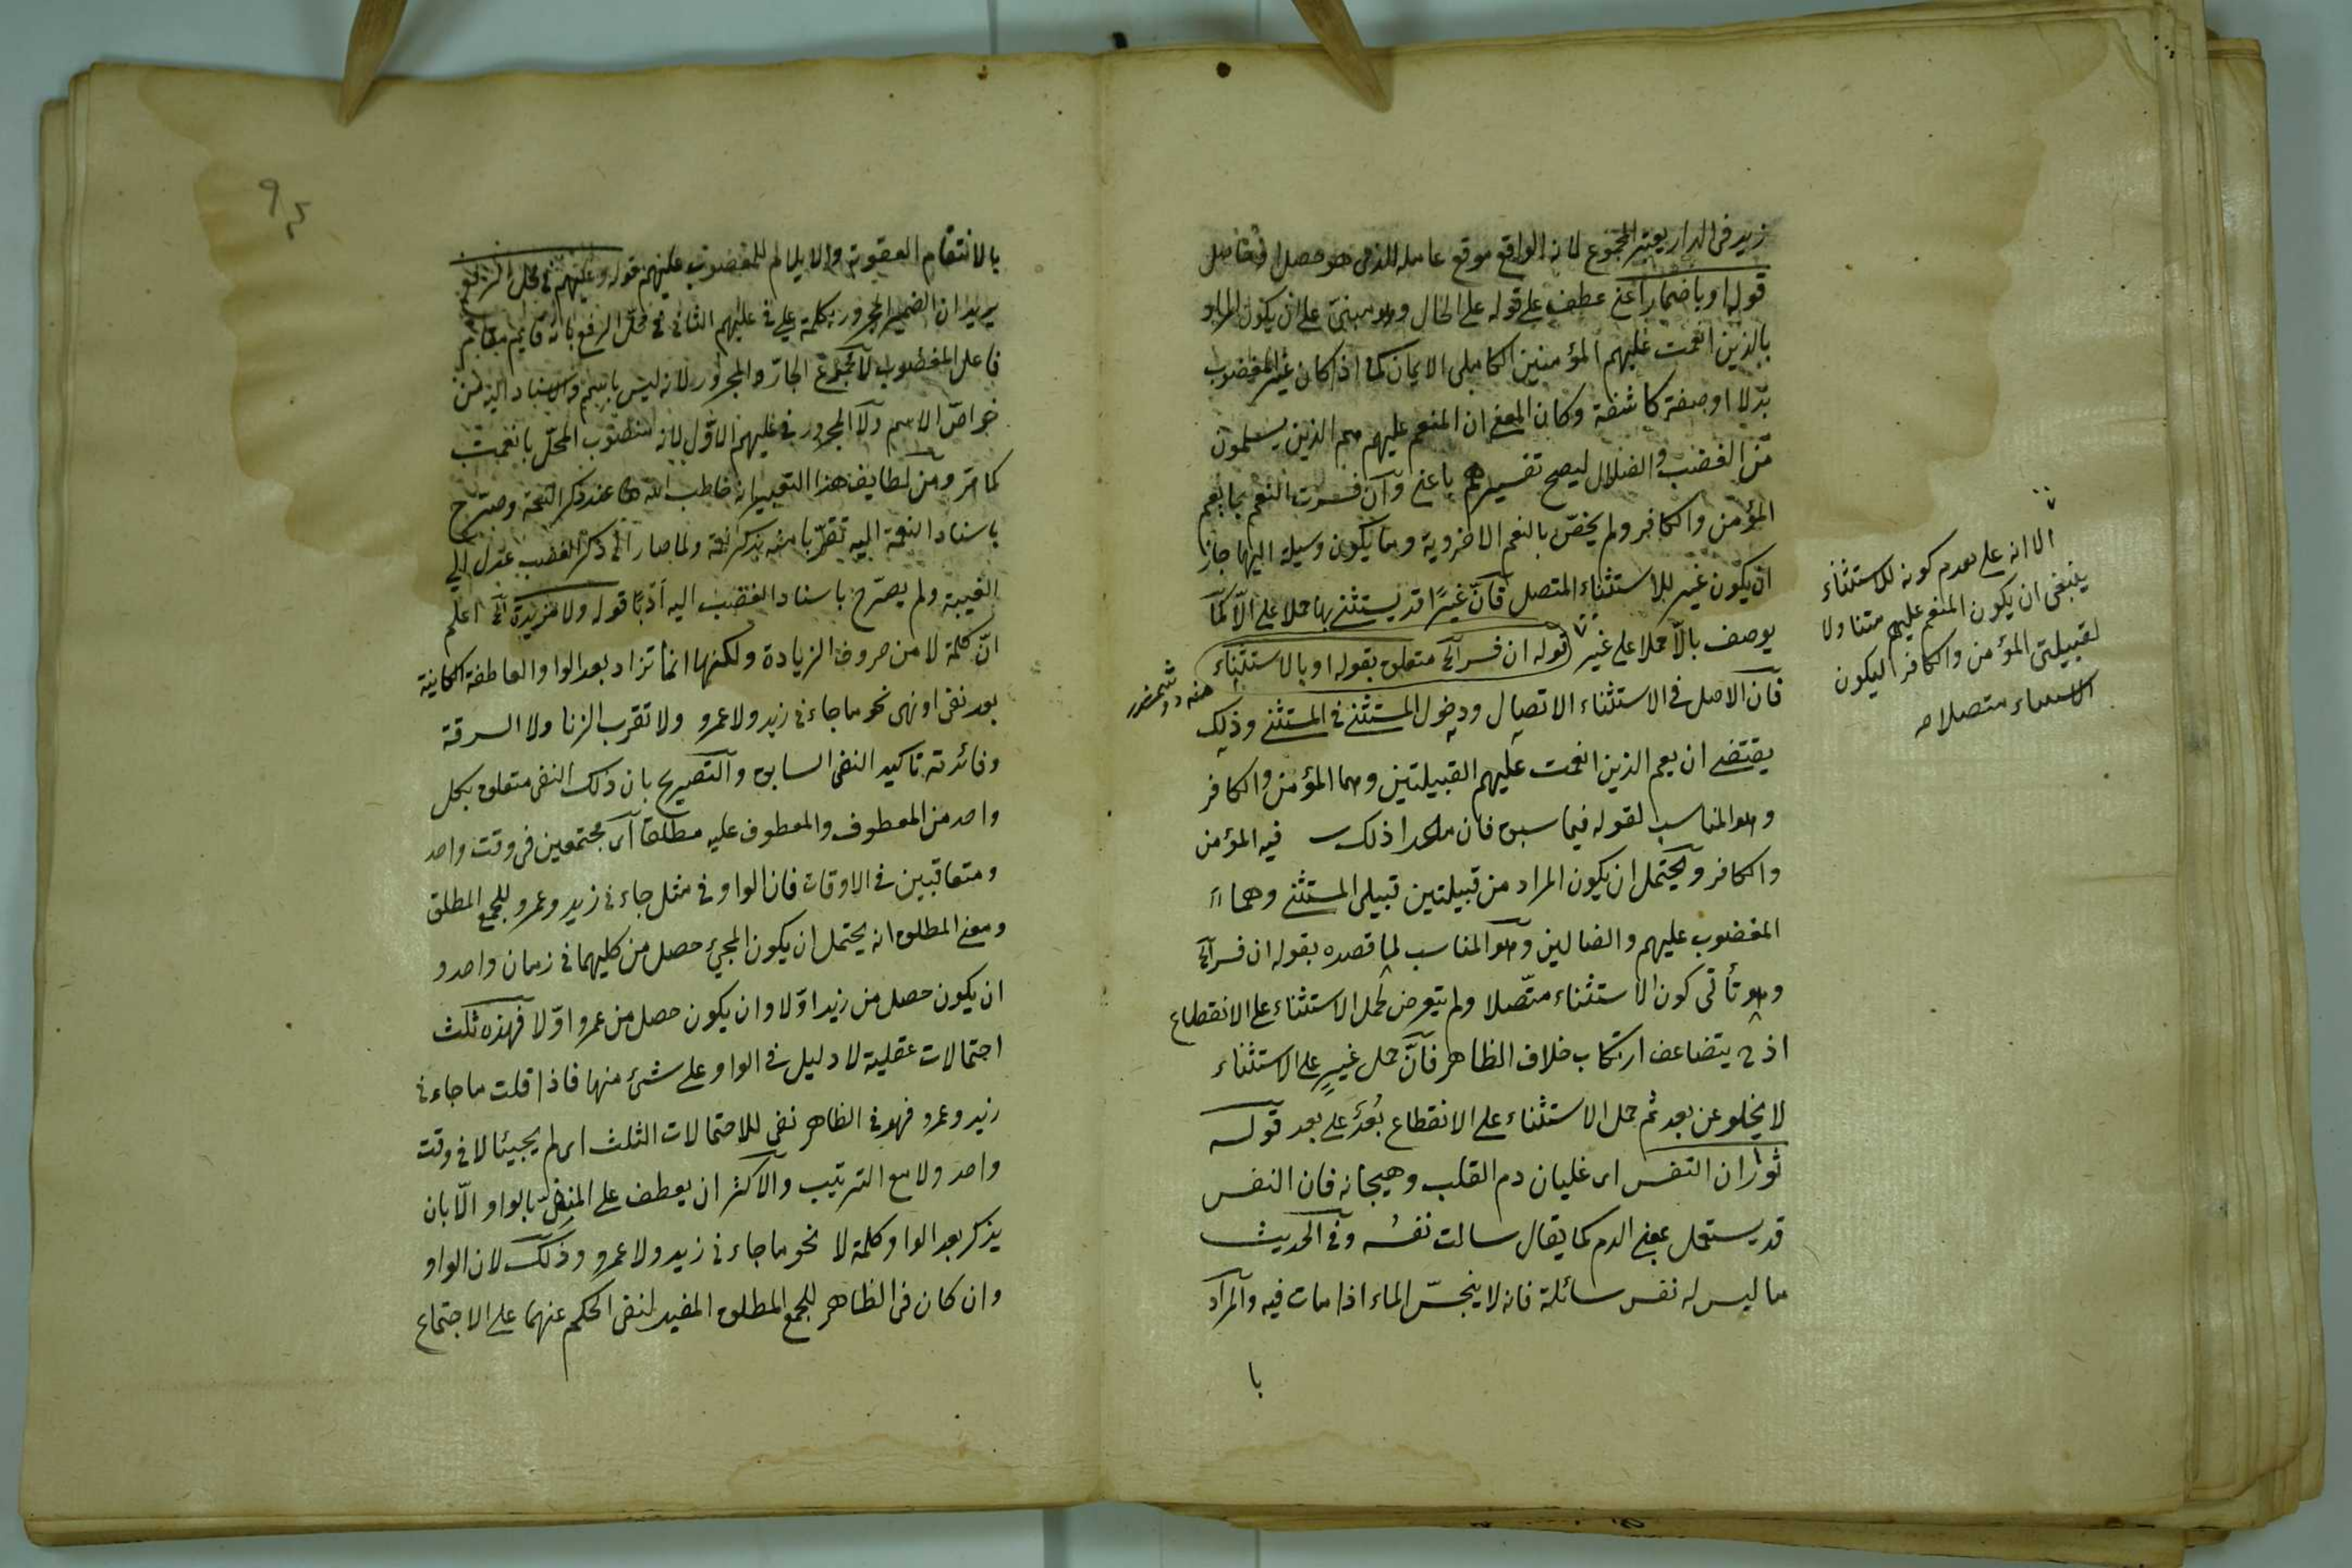 زيد فى الدار يعتبر المجموع لانه الواقع موقع عامله الذى هو حصل او حاصل
قوله او باضمار اعنى عطف على قوله على الحال وهو مبنىّ على ان يكون المراد
بالذين انعمت عليهم المؤمنين الكاملى الايمان كما اذا كان غير المغضوب
بدلا او صفة كاشفة وكان المعنى ان المنعم عليهم هم الذين يسلمون
من الغضب والضلال ليصح تفسيرهم باعنى وان فسرت النعم بما يعم
المؤمن والكافر ولم يخصّ بالنعم الاخروية وما يكون وسيلة اليها جاز
ان يكون غير للاستثناء المتصل فانّ غيرًا قد يستثنى بها حملا على الّا كما
يوصف بالّا حملا على غير قوله ان فسر الخ متعلق بقوله او بالاستثناء
فان الاصل فى الاستثناء الاتصال ودخول المستثنى فى المستثنى وذلك
يقتضى ان يعم الذين انعمت عليهم القبيلتين وهما المؤمن والكافر
وهو المناسب لقوله فيما سبق فان ماعدا ذلك فيه المؤمن
والكافر ويحتمل ان يكون المراد من قبيلتين قبيلى المستثنى وهما
المغضوب عليهم والضالين وهو المناسب لما قصده بقوله ان فسر الخ
وهو تأتى كون الاستثناء متّصلا ولم يتعرض لحمل الاستثناء على الانقطاع
اذ ح يتضاعف ارتكاب خلاف الظاهر فانّ حمل غيرٍ على الاستثناء
لا يخلو عن بعد ثم حمل الاستثناء على الانقطاع بُعدٌ على بعد قوله
ثوران النفس اى غليان دم القلب وهيجانه فان النفس
قد يستعمل بمعنى الدم كما يقال سالت نفسُه وفى الحديث
ما ليس له نفس سائلة فانه لا ينجسّ الماء اذا مات فيه والمراد
با
الا انه على تعدم كونه للاستثناء
ينبغى ان يكون المنعم عليهم متناولا
لقبيلتى المؤمن والكافر ليكون
الاستثناء متصلا
بالانتقام العقوبة والايلام للمغضوب عليهم قوله وعليهم فى محل الرفع
يريد ان الضمير المجرور بكلمة على فى عليهم الثانى فى محلّ الرفع بانه قايم مقام
فاعل المغضوب لا مجموع الجارّ والمجرور لانه ليس باسم والاسناد اليه من
خواصّ الاسم ولا المجرور فى عليهم الاوّل لانه منصوب المحلّ بانعمت
كما مّر ومن لطايف هذا التعبير انه خاطب الله تعا عند ذكر النعمة وصرّح
باسناد النعمة اليه تقرّبا منه بذكر نعمه ولما صار الى ذكر الغضب عدل الى
الغيبة ولم يصرّح باسناد الغضب اليه أدبًا قوله ولا مزيدة الخ اعلم
انّ كلمة لا من حروف الزيادة ولكنها انما تزاد بعد الواو العاطفة الكاينة
بعد نفى او نهى نحو ما جاءنى زيد ولا عمرو ولا تقرب الزنا ولا السرقة
وفائدته تاكيد النفى السابق والتصريح بان ذلك النفى متعلق بكل
واحد من المعطوف والمعطوف عليه مطلقا اى مجتمعين فى وقت واحد
ومتعاقبين فى الاوقات فان الواو فى مثل جاءنى زيد وعمرو للجمع المطلق
ومعنى المطلق انه يحتمل ان يكون المجئ حصل من كليهما فى زمان واحد و
ان يكون حصل من زيد اوّلا وان يكون حصل من عمرو اوّلا فهذه ثلث
احتمالات عقلية لا دليل فى الواو على شئ منها فاذا قلت ما جاءنى
زيد وعمرو فهو فى الظاهر نفى للاحتمالات الثلث اى لم يجيئا لا فى وقت
واحد ولا مع الترتيب والاكثر ان يعطف على المنفىّ بالواو الّا بان
يذكر بعد الواو كلمة لا نحو ما جاءنى زيد ولا عمرو وذلك لان الواو
وان كان فى الظاهر للجمع المطلق المفيد لنفى الحكم عنهما على الاجتماع